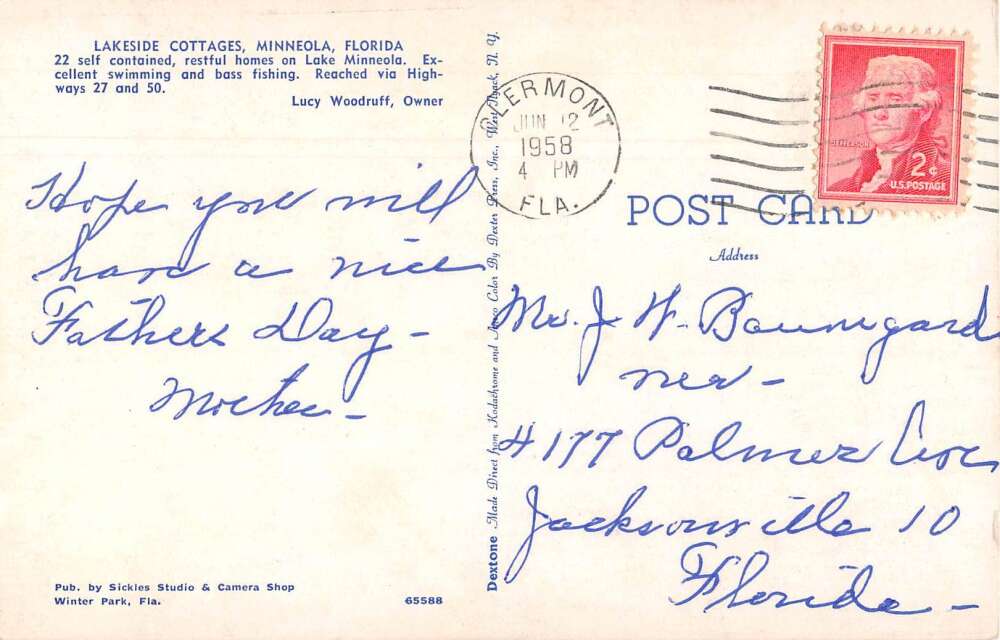 LAKESIDE COTTAGES, MINNEOLA, FLORIDA
22 self contained, restful homes on Lake Minneola. Ex-
cellent swimming and bass fishing. Reached via High-
ways 27 and 50.
Lucy Woodruff, Owner
Hope you will
have a nice
Fathers Day -
Mother -
Pub. by Sickles Studio & Camera Shop
Winter Park, Fla.
65588
Dextone Made Direct from Kodachrome and Ansco Color By Dexter Press, Inc., West Nyack, N. Y.
CLERMONT
JUN 12
1958
4 PM
FLA.
JEFFERSON
2¢
U.S. POSTAGE
POST CARD
Address
Mr. J. W. Baumgard
ner -
4177 Palmer Circ
Jacksonville 10
Florida -